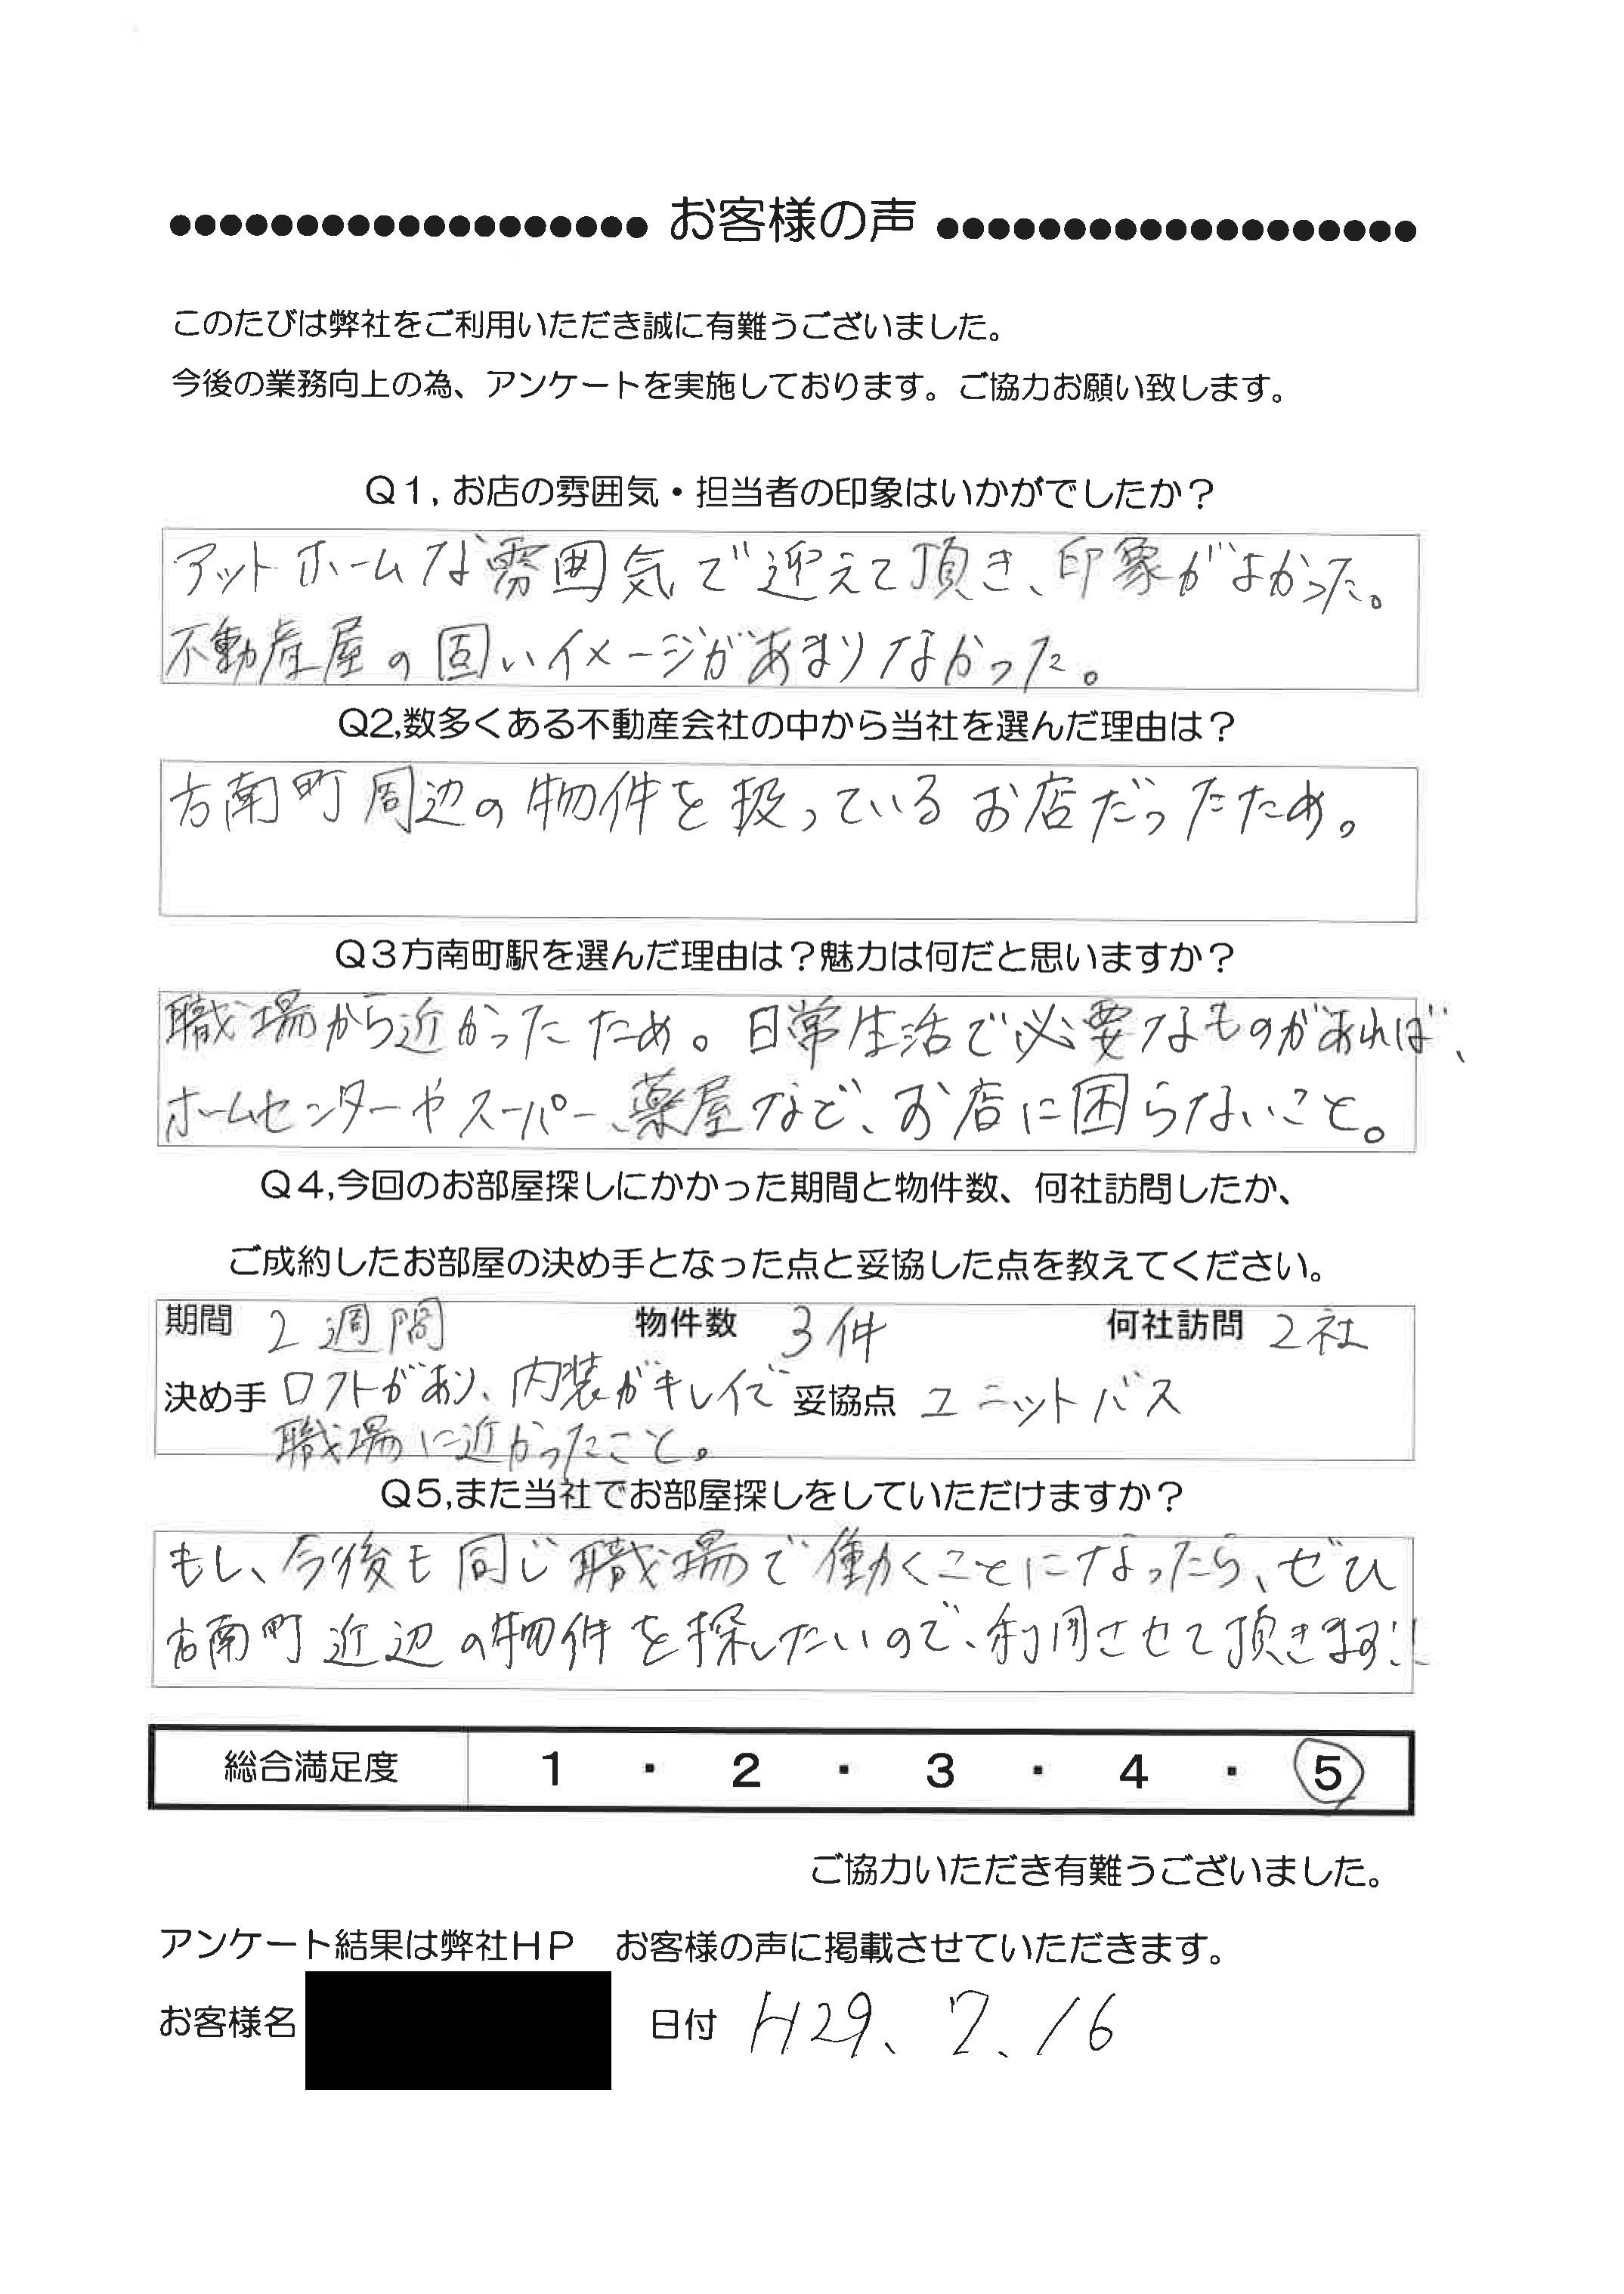 ●●●●●●●●●●●●●●●●●●● お客様の声 ●●●●●●●●●●●●●●●●●●●
このたびは弊社をご利用いただき誠に有難うございました。
今後の業務向上の為、アンケートを実施しております。ご協力お願い致します。
Q1,お店の雰囲気・担当者の印象はいかがでしたか？
アットホームな雰囲気で迎えて頂き、印象がよかった。
不動産屋の固いイメージがあまりなかった。
Q2,数多くある不動産会社の中から当社を選んだ理由は？
方南町周辺の物件を扱っているお店だったため。
Q3方南町駅を選んだ理由は？魅力は何だと思いますか？
職場から近かったため。日常生活で必要なものがあれば、
ホームセンターやスーパー、薬屋など、お店に困らないこと。
Q4,今回のお部屋探しにかかった期間と物件数、何社訪問したか、
ご成約したお部屋の決め手となった点と妥協した点を教えてください。
期間 2週間 物件数 3件 何社訪問 2社
決め手 ロフトがあり、内装がキレイで 妥協点 ユニットバス
職場に近かったこと。
Q5,また当社でお部屋探しをしていただけますか？
もし、今後も同じ職場で働くことになったら、ぜひ
方南町近辺の物件を探したいので、利用させて頂きます!!
総合満足度 1 ・ 2 ・ 3 ・ 4 ・ 5
ご協力いただき有難うございました。
アンケート結果は弊社HP お客様の声に掲載させていただきます。
お客様名 日付 H29、7、16